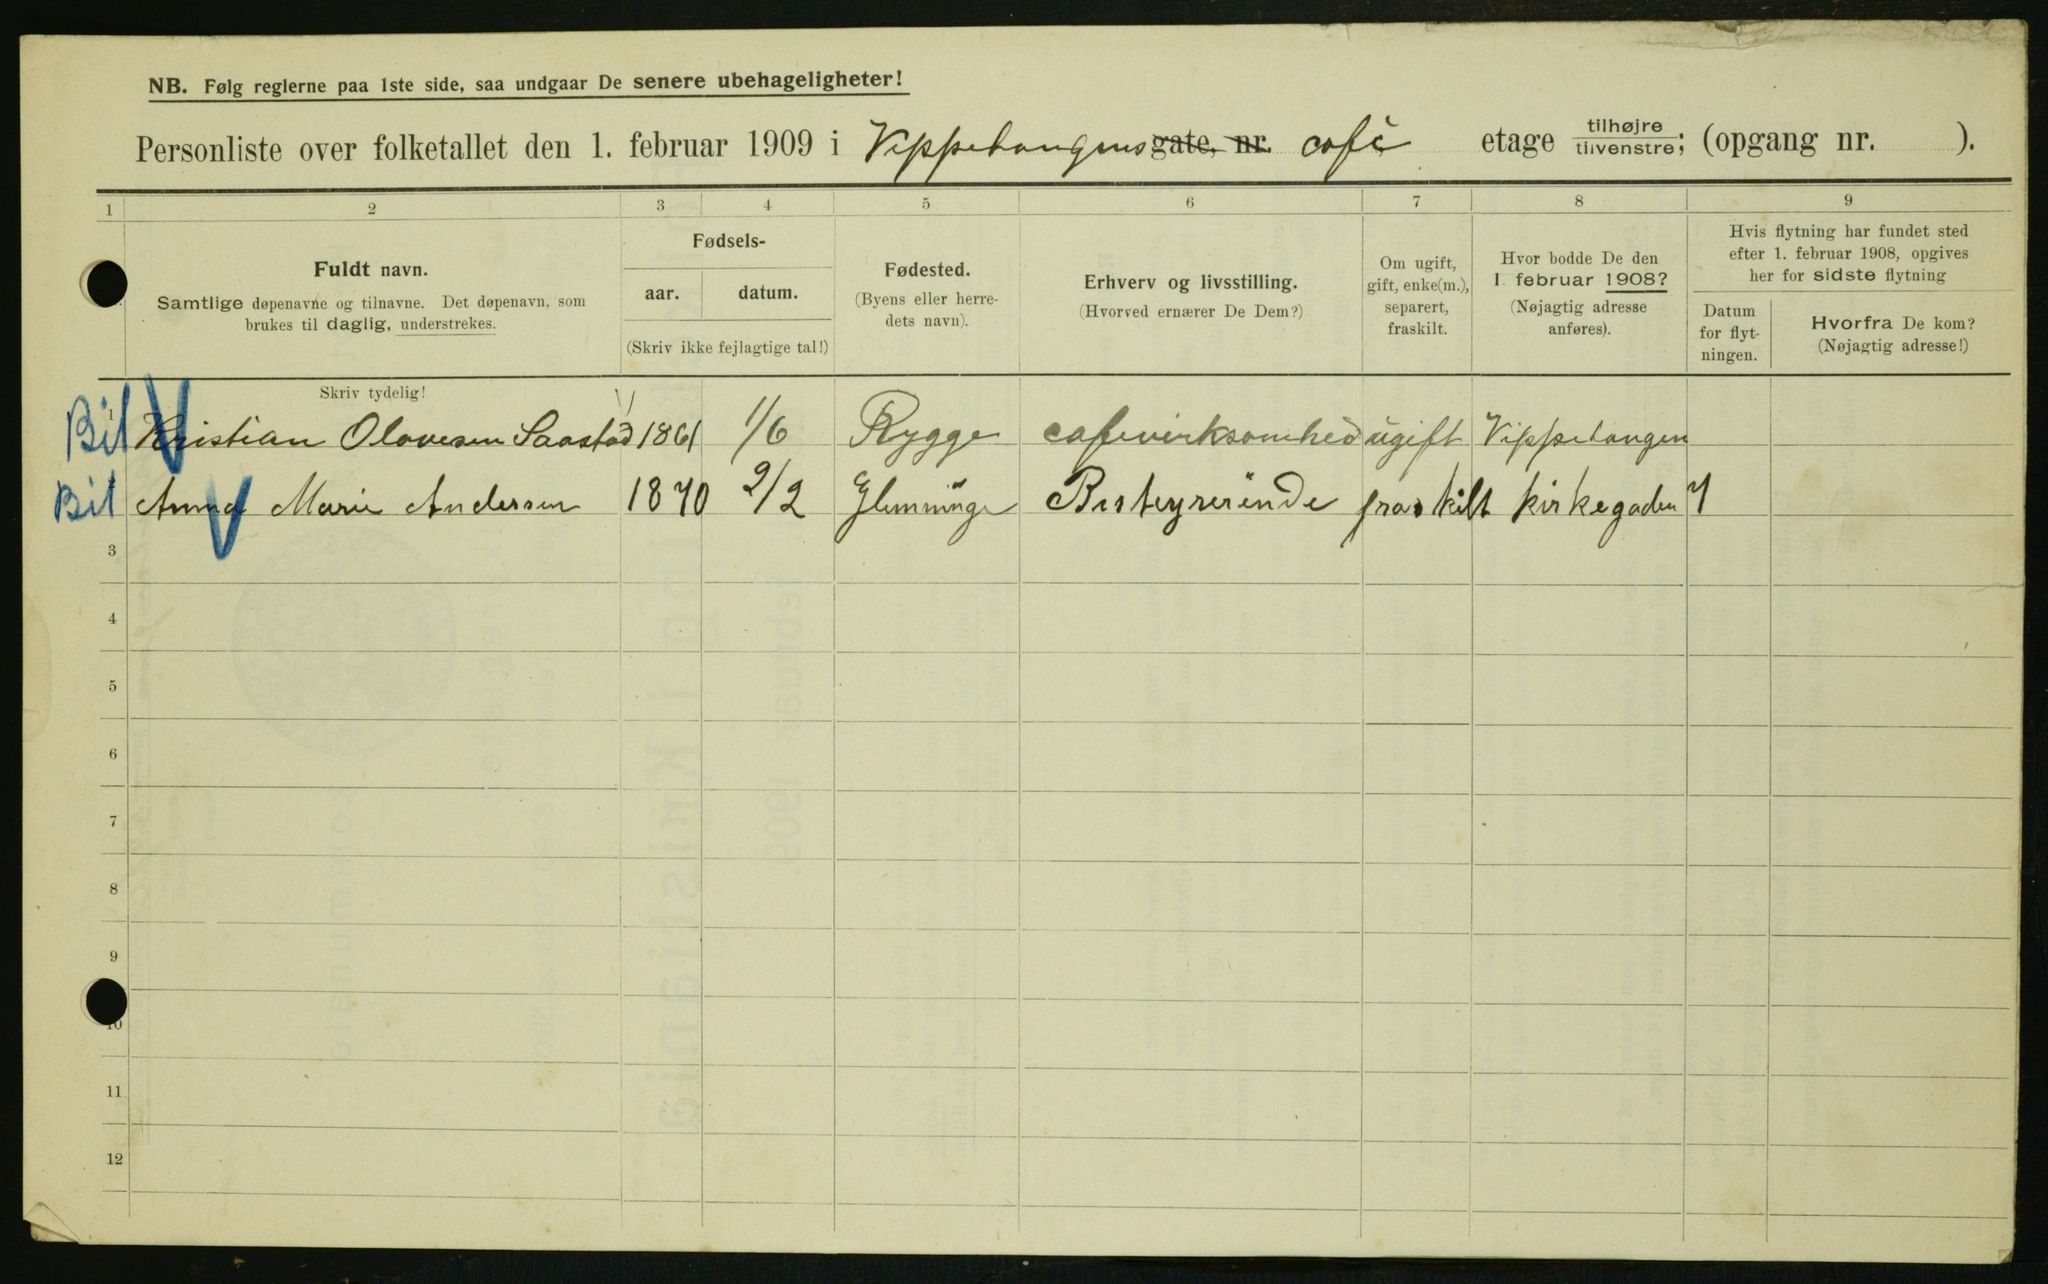 NB. Følg reglerne paa 1ste side, saa undgaar De senere ubehageligheter!
Personliste over folketallet den 1. februar 1909 i Vippetangens gate, nr. café etage tilhøjre tilvenstre; (opgang nr. ).
1 2 3 4 5 6 7 8 9
Fuldt navn.
Samtlige døpenavne og tilnavne. Det døpenavn, som
brukes til daglig, understrekes.
Fødsels-
aar. datum.
(Skriv ikke fejlagtige tal!)
Fødested.
(Byens eller herre-
dets navn).
Erhverv og livsstilling.
(Hvorved ernærer De Dem?)
Om ugift,
gift, enke(m.),
separert,
fraskilt.
Hvor bodde De den
1. februar 1908?
(Nøjagtig adresse
anføres).
Hvis flytning har fundet sted
efter 1. februar 1908, opgives
her for sidste flytning
Datum
for flyt-
ningen.
Hvorfra De kom?
(Nøjagtig adresse!)
Skriv tydelig!
Bil 1 Kristian Olavesen Saastad 1861 1/6 Rygge cafevirksomhed ugift Vippetangen
Bil Anna Marie Andersen 1870 2/2 Glemminge Bestyrerinde fraskilt kirkegaden 7
3
4
5
6
7
8
9
10
11
12